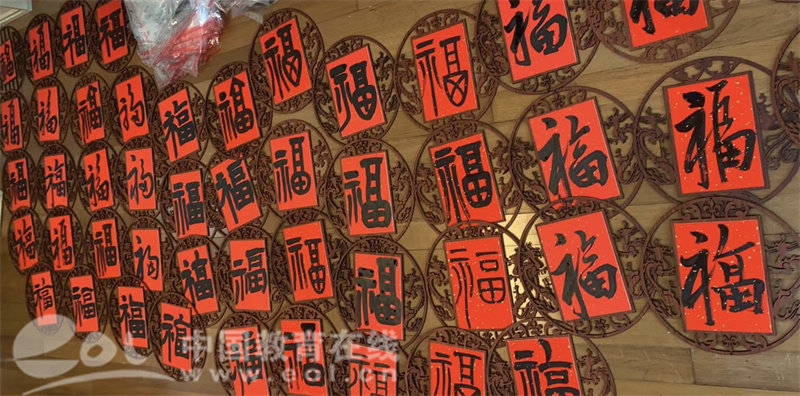 福福福福福福福福福福福
福福福福福福福福福福福
福福福福福福福福福福福
福福福福福福福福福
福福福福
eol 中国教育在线
www.eol.cn